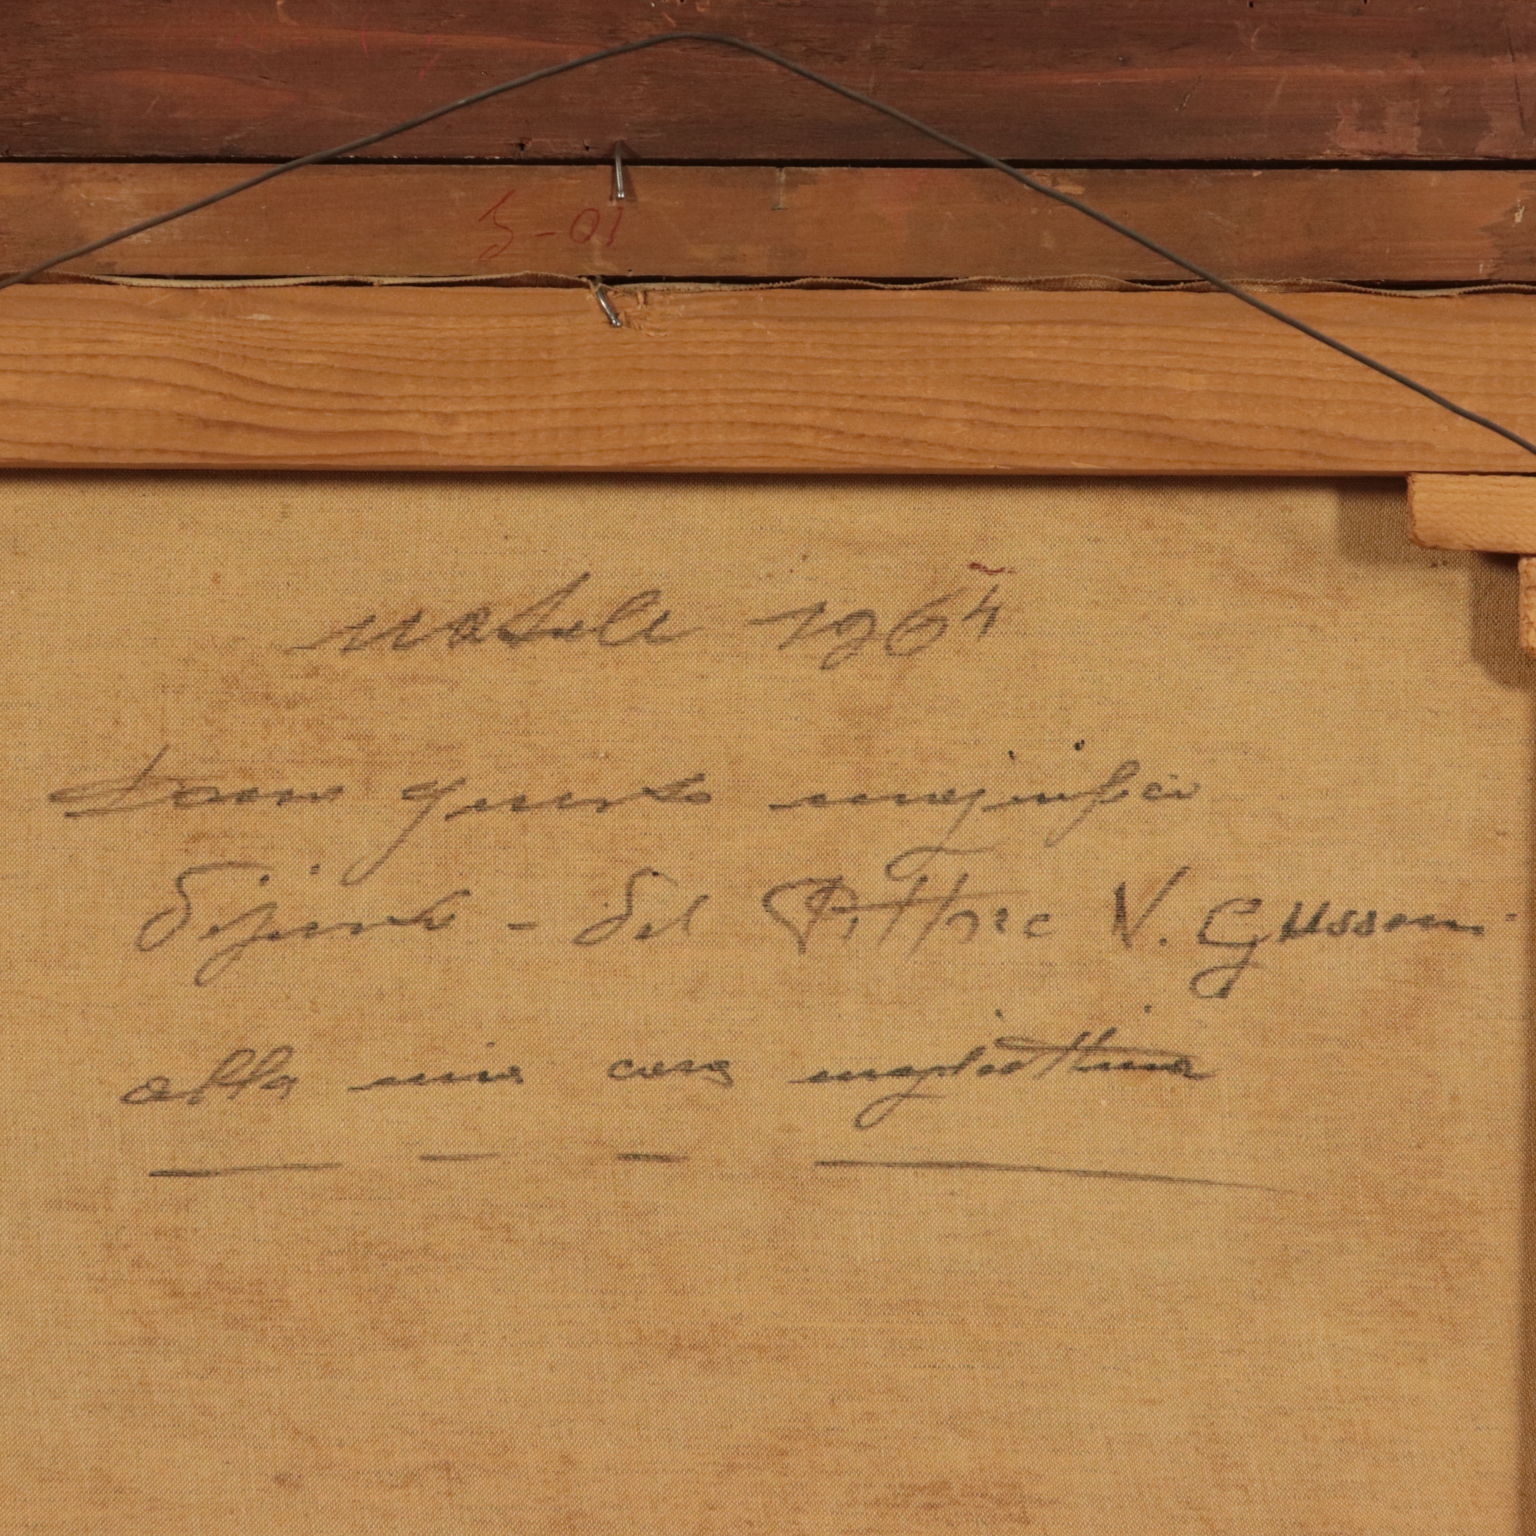 10-5
Natale 1964
Dono questo magnifico
dipinto - del Pittore V. Gussoni
alla mia cara mogliettina